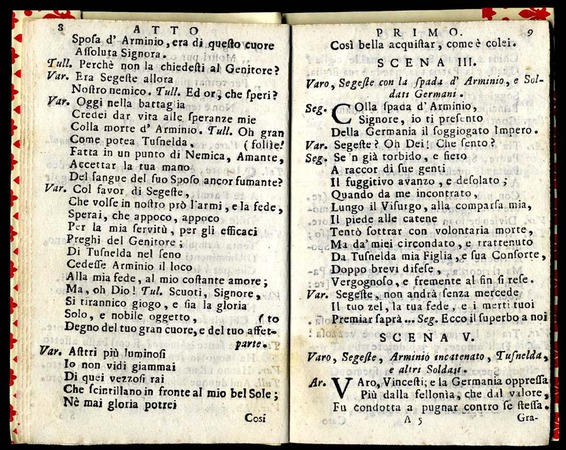 8 ATTO
Sposa d' Arminio, era di questo cuore
Assoluta Signora.
Tull. Perchè non la chiedesti al Genitore?
Var. Era Segeste allora
Nostro nemico. Tull. Ed or, che speri?
Var. Oggi nella battaglia
Credei dar vita alle speranze mie
Colla morte d' Arminio. Tull. Oh gran
Come potea Tusnelda, (follìe!
Fatta in un punto di Nemica, Amante,
Accettar la tua mano
Del sangue del suo Sposo ancor fumante?
Var. Col favor di Segeste,
Che volse in nostro prò l'armi, e la fede,
Sperai, che appoco, appoco
Per la mia servitù, per gli efficaci
Preghi del Genitore;
Di Tusnelda nel seno
Cedesse Arminio il loco
Alla mia fede, al mio costante amore;
Ma, oh Dio! Tul. Scuoti, Signore,
Si tirannico giogo, e sia la gloria
Solo, e nobile oggetto, (to
Degno del tuo gran cuore, e del tuo affet-
parte.
Var. Astri più luminosi
Io non vidi giammai
Di quei vezzosi rai
Che scintillano in fronte al mio bel Sole;
Nè mai gloria potrei
Così
PRIMO. 9
Così bella acquistar, come è colei.
SCENA III.
Varo, Segeste con la spada d' Arminio, e Sol-
dati Germani.
Seg. COlla spada d' Arminio,
Signore, io ti presento
Della Germania il soggiogato Impero.
Var. Segeste? Oh Dei! Che sento?
Seg. Se n'gia torbido, e fiero
A raccor di sue genti
Il fuggitivo avanzo, e desolato;
Quando da me incontrato,
Lungo il Visurgo, alla comparsa mia,
Il piede alle catene
Tentò sottrar con volontaria morte,
Ma da' miei circondato, e trattenuto
Da Tusnelda mia Figlia, e sua Consorte,
Doppo brevi difese,
Vergognoso, e fremente al fin si rese.
Var. Segeste, non andrà senza mercede
Il tuo zel, la tua fede, e i merti tuoi
Premiar saprà ... Seg. Ecco il superbo a noi
SCENA V.
Varo, Segeste, Arminio incatenato, Tusnelda,
e altri Soldati.
Ar. VAro, Vincesti; e la Germania oppressa
Più dalla fellonìa, che dal valore,
Fu condotta a pugnar contro se stessa.
A 5 Gra-